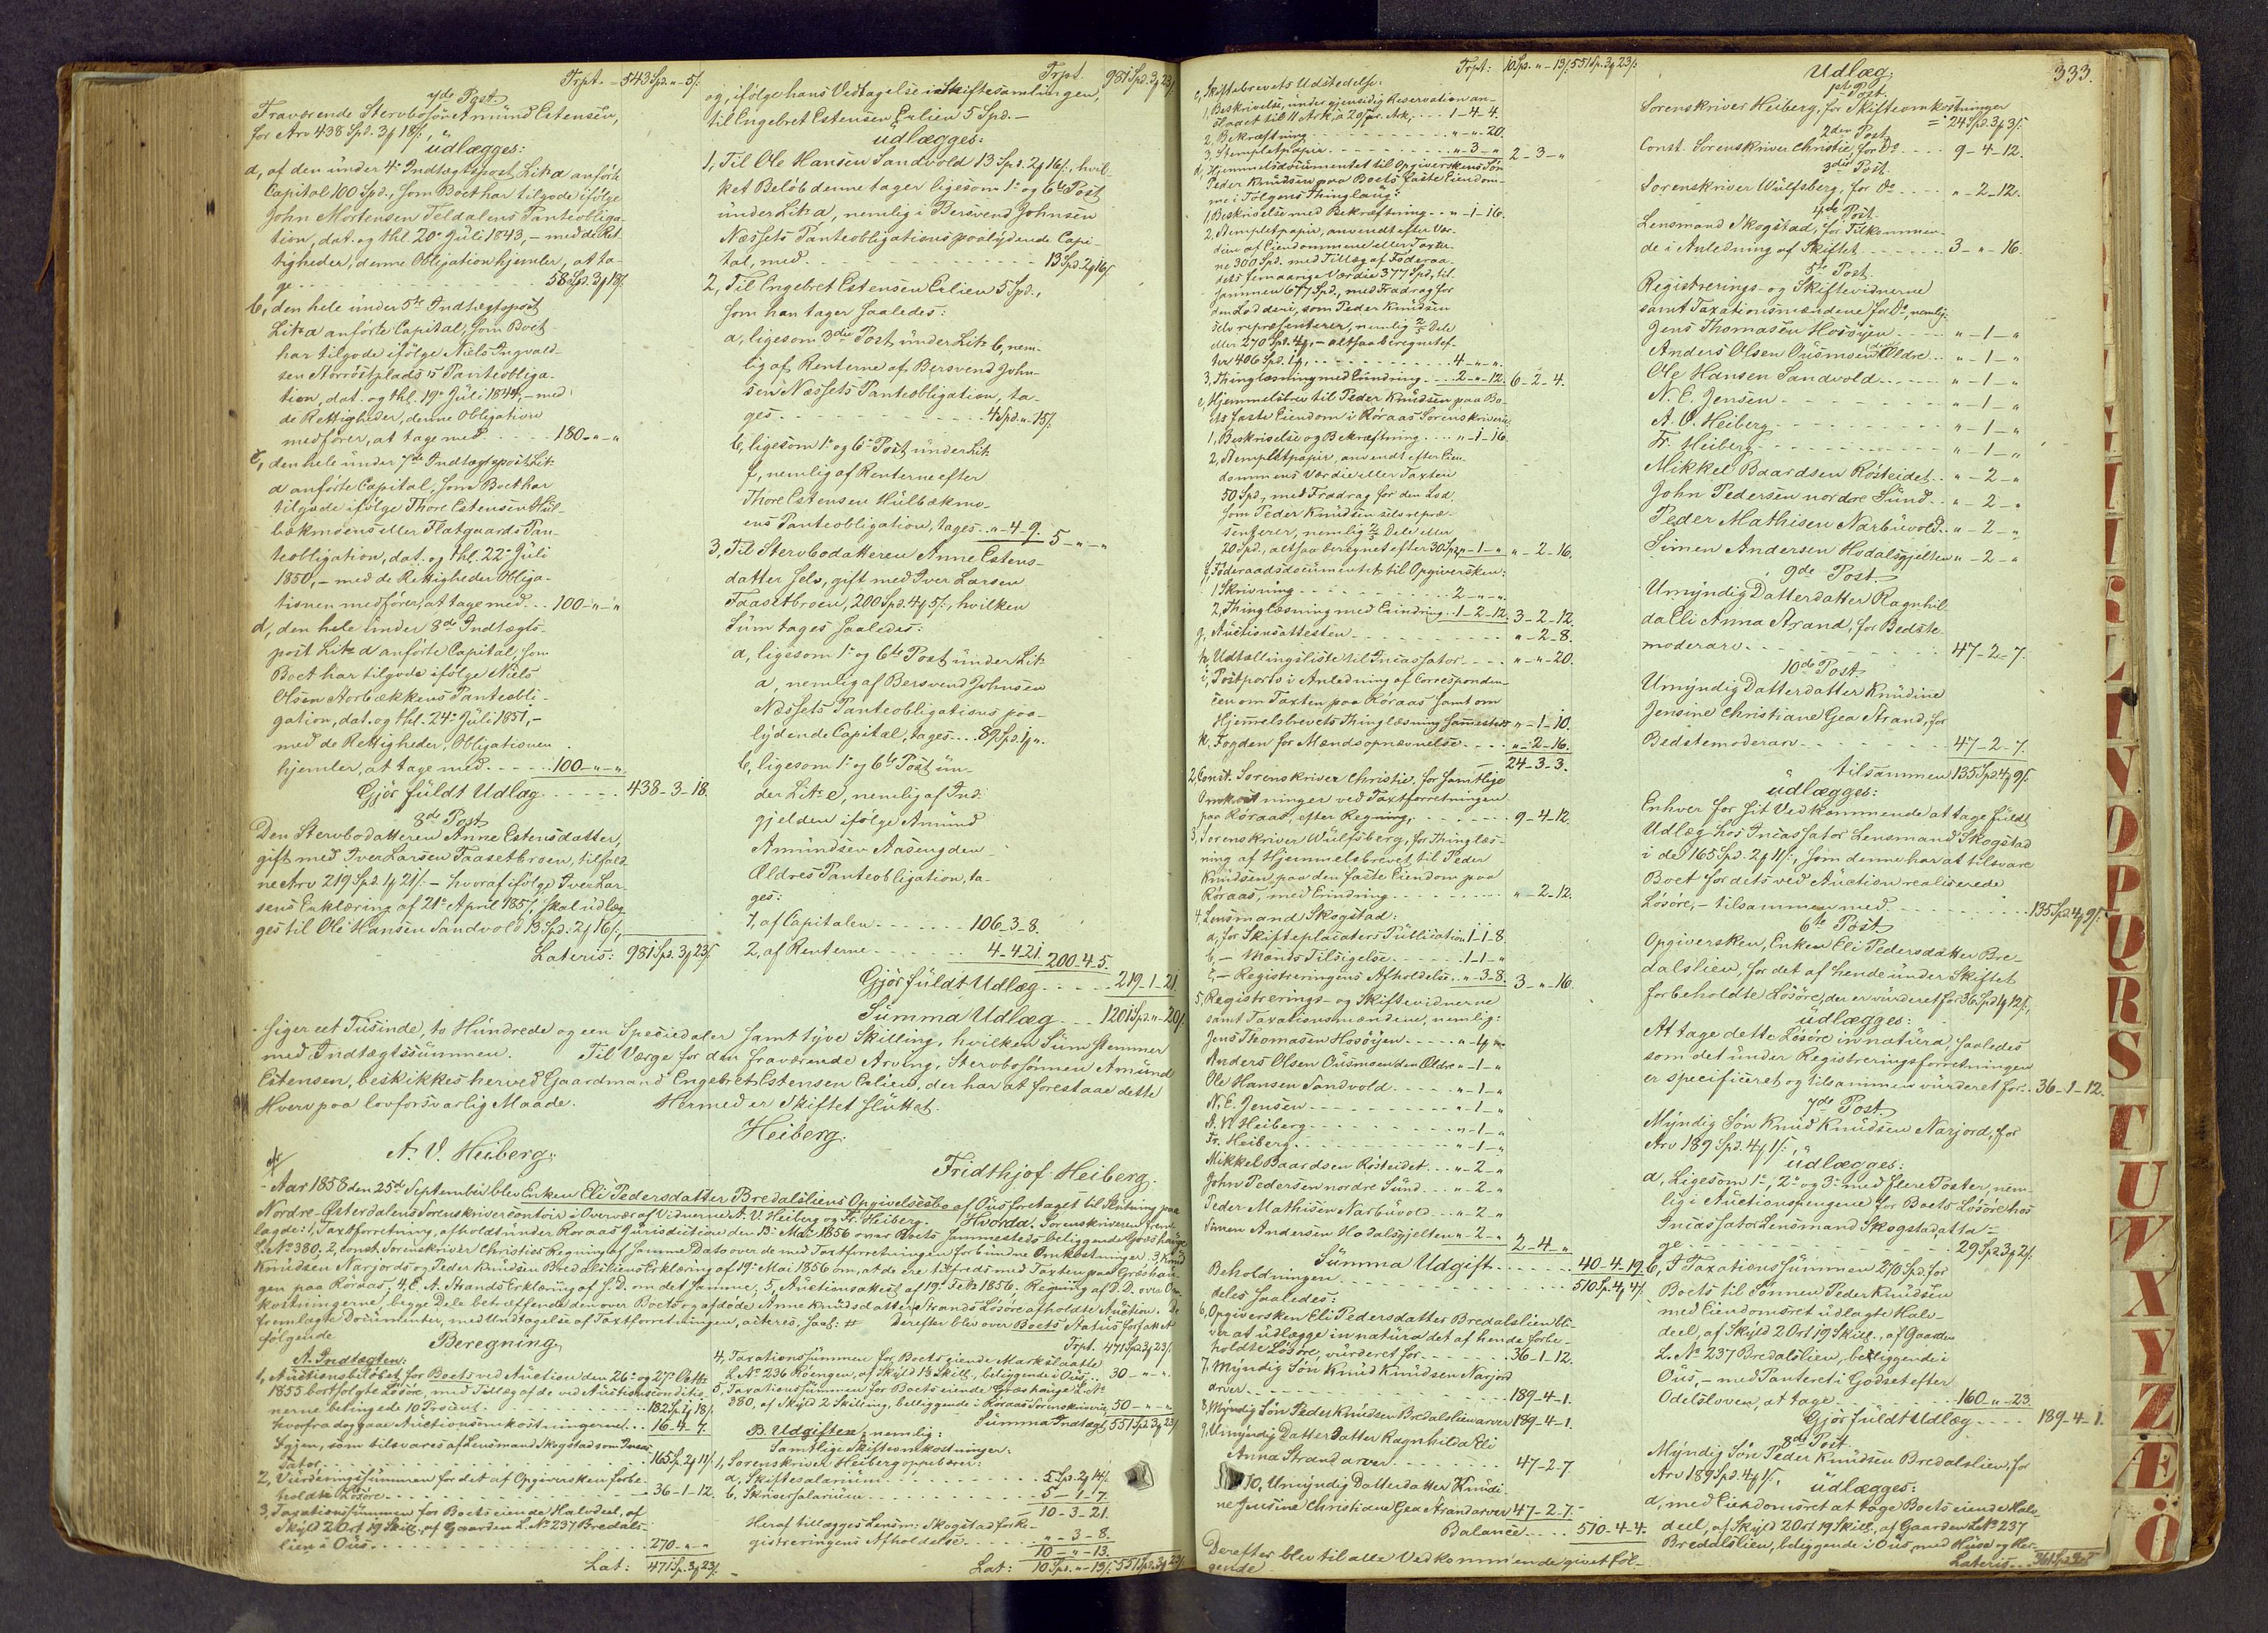 Trpt. - 543 Spd. " - 5 ſ.
7de Post.
Fraværende Sterbosøn Amund Estensen,
for Arv 438 Spd. 3 ₰ 18 ſ.,
udlægges:
a, af den under 4de Indtægtspost Litr. a anførte
Capital 100 Spd., som Boet har tilgode ifølge
John Mortensen Teldalens Panteobliga-
tion, dat. og thl. 20de Juli 1843, - med de Ret-
tigheder, denne Obligation hjemler, at ta-
ge . . . 58 Spd. 3 ₰ 18 ſ.
b, den hele under 5te Indtægtspost
Litr. a anførte Capital, som Boet
har tilgode ifølge Niels Ingvald-
sen Storrøstplads's Panteobliga-
tion, dat. og thl. 19de Juli 1844, - med
de Rettigheder, denne Obligation
medfører, at tage med . . . 180 - " - "
c, den hele under 7de Indtægtspost Litr.
a anførte Capital, som Boet har
tilgode ifølge Thore Estensen Hul-
bækmoens eller Flatgaards Pan-
teobligation, dat. og thl. 22de Juli
1850, - med de Rettigheder Obliga-
tionen medfører, at tage med . . 100 - " - "
d, den hele under 8de Indtægts-
post Litr. a anførte Capital, som
Boet har tilgode ifølge Niels
Olsen Storbækkens Panteobli-
gation, dat. og thl. 24de Juli 1851, -
med de Rettigheder, Obligationen
hjemler, at tage med . . . 100 - " - "
Gjør fuldt Udlæg . . . 438 - 3 - 18.
8de Post.
Den Sterbodatteren Anne Estensdatter,
gift med Iver Larsen Faasetbroen, tilfald-
ne Arv 219 Spd. 1 ₰ 21 ſ. - hvoraf ifølge Iver Lar-
sens Erklæring af 21de April 185 , skal udlæg-
ges til Ole Hansen Sandvold 13 Spd. 2 ₰ 16 ſ.,
Lateris: 981 Spd. 3 ₰ 23 ſ.
Trpt. 981 Spd. 3 ₰ 23 ſ.
og, ifølge hans Vedtagelse i Skiftesamlingen,
til Engebret Estensen Erlien 5 Spd. -
udlægges:
1, Til Ole Hansen Sandvold 13 Spd. 2 ₰ 16 ſ., hvil-
ket Beløb denne tager ligesom 1ste og 6te Post
under Litr. a, nemlig i Bersvend Johnsen
Næssets Panteobligations paalydende Capi-
tal, med . . . 13 Spd. 2 ₰ 16 ſ.
2, Til Engebret Estensen Erlien 5 Spd.,
som han tager saaledes:
a, ligesom 3die Post under Litr. b, nem-
lig af Renterne af Bersvend John-
sen Næssets Panteobligation, ta-
ges . . . 4 Spd. " - 15 ſ.
b, ligesom 1ste og 6te Post under Litr.
f, nemlig af Renterne efter
Thore Estensen Hulbækmo-
ens Panteobligation, tages . . " - 4 - 9. 5 - " - "
3, Til Sterbodatteren Anne Estens-
datter selv, gift med Iver Larsen
Faasetbroen, 200 Spd. 4 ₰ 5 ſ., hvilken
Sum tages saaledes:
a, ligesom 1ste og 6te Post under Litr.
a, nemlig af Bersvend Johnsen
Næssets Panteobligations paa-
lydende Capital, tages . . . 89 Spd. 1 ₰ ".
b, ligesom 1ste og 6te Post un-
der Litr. e, nemlig af Ind-
gjelden ifølge Amund
Amundsen Aasengden
Ældres Panteobligation, ta-
ges:
1, af Capitalen . . . 106 - 3 - 8.
2, af Renterne . . . 4 - 4 - 21. 200 - 4 - 5.
Gjør fuldt Udlæg . . . 219 - 1 - 21.
Summa Udlæg . . . 1201 Spd. " - 20 ſ.
siger eet Tusinde, to Hundrede og een Speciedaler samt tyve Skilling, hvilken Sum stemmer
med Indtægtssummen. Til Værge for den fraværende Arving, Sterbosønnen Amund
Estensen, beskikkes herved Gaardmand Engebret Estensen Erlien, der har at forestaae dette
Hverv paa lovforsvarlig Maade. Hermed er Skiftet sluttet.
Heiberg.
A. V. Heiberg.
Fridthjof Heiberg.
Aar 1858 den 25de September blev Enken Eli Pedersdatter Bredalsliens Opgivelsesbo af Øus foretaget til Slutning paa
Nordre-Østerdalens Sorenskrivercontoir i Overvær af Vidnerne A. V. Heiberg og Fr. Heiberg. Hvorda: Sorenskriveren frem-
lagde: 1, Taxtforretning, afholdt under Røraas Jurisdiction den 13de Mai 1856 over Boets sammesteds beliggende Græshauge
L. No 380, 2, const. Sorenskriver Christies Regning af samme Dato over de med Taxtforretningen forbundne Omkostninger. 3, Knud
Knudsen Narjords og Peder Knudsen Bredalsliens Erklæring af 19de Mai 1856 om, at de ere tilfreds med Taxten paa Græshau-
gen paa Røraas; 4, E. A. Strands Erklæring af s. D. om det samme, 5, Auctionsakten af 19de Feb. 1856. Regning af D. D. over Om-
kostningerne, begge Dele betræffende den over Boets og afdøde Anne Knudsdatter Strands Løsøre afholdte Auction. De
fremlagte Documenter, med Undtagelse af Taxtforretningen, acteres, saal: # Derefter blev over Boets Status forfattet
følgende
Beregning.
A. Indtægten:
1, Auctionsbeløbet for Boets ved Auction den 26de og 27de Octbr.
1855 bortsolgte Løsøre, med Tillæg af de ved Auctionsconditio-
nerne betingede 10 Procent . . . 182 Sp. 1 ₰ 18 ſ.
hvorfra dog gaae Auctionsomkostningerne . . 16 - 4 - 7.
Igjen, som tilsvares af Lensmand Skogstad som Incas-
sator . . . 165 Sp. 2 ₰ 11 ſ.
2, Vurderingssummen for det af Opgiversken forbe-
holdte Løsøre . . . 36 - 1 - 12.
3, Taxationssummen for Boets eiende Halvdeel, af
Skyld 2 Ort 19 Skill., af Gaarden L. No 237 Bredals-
lien i Øus . . . 270 - " - "
Lat: 471 Sp. 3 ₰ 23 ſ.
Trpt. 471 Spd. 3 ₰ 23 ſ.
4, Taxationssummen for Boets eiende Markslaatte
L. No 236 Røengen, af Skyld 13 Skill., beliggende i Øus . . 30 - " - ".
5, Taxationssummen for Boets eiende Græshauge L. No
380, af Skyld 2 Skilling, beliggende i Røraas Sorenskriverie 50 - " - "
Summa Indtægt 551 Spd. 3 ₰ 23 ſ.
B. Udgiften, nemlig:
Samtlige Skifteomkostninger:
1, Sorenskriver Heiberg oppebærer:
a, Skiftesalarium . . . 5 Spd. 2 ₰ 14 ſ.
b, Skriversalarium . . . 5 - 1 - 7.
10 - 3 - 21.
Heraf tillægges Lensm. Skogstad for Re-
gistreringens Afholdelse . . . " - 3 - 8.
10 - " - 13.
Lat: 10 Spd. " - 13 ſ. 551 Spd. 3 ₰ 23 ſ.
Trpt: 10 Sp. " - 13 ſ. 551 Sp. 3 ₰ 23 ſ.
c, Skiftebrevets Udstedelse:
1, Beskrivelse, under gjensidig Reservation an-
slaaet til 11 Ark, a 20 ſ. pr. Ark, . . . 1 - 4 - 4.
2, Bekræftning . . . " - " - 20.
3, Stempletpapir . . . " - 3 - " 2 - 3 - "
d, Hjemmelsdocumentet til Opgiverskens Søn
Peder Knudsen paa Boets faste Eiendom-
me i Tolgens Thinglaug:
1, Beskrivelse med Bekræftning . . " - 1 - 16.
2, Stempletpapir, anvendt efter Vær-
dien af Eiendommene eller Taxter-
ne 300 Spd. med Tillæg af Føderaa-
dets femaarige Værdie 377 Spd., til-
sammen 677 Spd., med Fradrag for
den Lod deri, som Peder Knudsen
selv repræsenterer, nemlig 2/5 Dele
eller 270 Spd. 4 ₰, - altsaa beregnet ef-
ter 406 Spd. 1 ₰, . . . 4 - " - ".
3, Thinglæsning med Erindring . . 2 - " - 12. 6 - 2 - 4.
e, Hjemmelsbrev til Peder Knudsen paa Bo-
ets faste Eiendom i Røraas Sorenskriverie:
1, Beskrivelse og Bekræftning . . . " - 1 - 16.
2, Stempletpapir, anvendt efter Eien-
dommens Værdie eller Taxten
50 Spd., med Fradrag for den Lod,
som Peder Knudsen selv repræ-
senterer, nemlig 2/5 Dele eller
20 Spd., altsaa beregnet efter 30 Spd. " - 1 - " " - 2 - 16.
f, Føderaadsdocumentet til Opgiversken:
1, Skrivning . . . 2 - " - ".
2, Thinglæsning med Erindring . . 1 - 2 - 12. 3 - 2 - 12.
g, Auctionsattesten . . . " - 2 - 8.
h, Udtællingsliste til Incassator . . . " - " - 20.
i, Postporto i Anledning af Corresponden-
cen om Taxten paa Røraas samt om
Hjemmelsbrevets Thinglæsning sammesteds " - 1 - 10.
k, Fogden for Mændsopnævnelse . . . " - 2 - 16.
24 - 3 - 3.
2, Const. Sorenskriver Christie, for samtlige
Omkostninger ved Taxtforretningen
paa Røraas, efter Regning, . . . 9 - 4 - 12.
3, Sorenskriver Wulfsberg, for Thinglæs-
ning af Hjemmelsbrevet til Peder
Knudsen paa den faste Eiendom paa
Røraas, med Erindring . . . " - 2 - 12.
4, Lensmand Skogstad:
a, for Skifteplacaters Publication 1 - 1 - 8.
b, - Mænds Tilsigelse . . . 1 - 1 - "
c, - Registreringens Afholdelse . . " - 3 - 8. 3 - " - 16.
5, Registrerings- og Skiftevidnerne
samt Taxationsmændene, nemlig:
Jens Thomasen Hosøyen . . . " - 1 ₰ - "
Anders Olsen Øusmoen den Ældre " - 1 - "
Ole Hansen Sandvold . . . " - 1 - "
N. E. Jensen . . . " - 1 - "
A. V. Heiberg . . . " - 1 - "
Fr. Heiberg . . . " - 1 - "
Mikkel Baardsen Røsteidet . . . " - 2 - "
John Pedersen nordre Sund . . . " - 2 - "
Peder Mathisen Narbuvold . . . " - 2 - "
Simen Andersen Hodalsgjelten " - 2 - " 2 - 4 - "
Summa Udgift . . . 40 - 4 - 19.
Beholdningen . . . 510 Sp. 4 ₰ 4 ſ.
deles saaledes:
6, Opgiversken Eli Pedersdatter Bredalslien bli-
ver at udlægge in natura det af hende forbe-
holdte Løsøre, vurderet for . . . 36 - 1 - 12.
7, Myndig Søn Knud Knudsen Narjord
arver . . . 189 - 4 - 1.
8, Myndig Søn Peder Knudsen Bredalslien arver 189 - 4 - 1.
9, Umyndig Datterdatter Ragnhilda Eli
Anna Strand arver . . . 47 - 2 - 7
10, Umyndig Datterdatter Knudi-
ne Jensine Christiane Gea Strand arver 47 - 2 - 7.
Balance . . . 510 - 4 - 4.
Derefter blev til alle Vedkommende givet føl-
gende
333.
Udlæg:
1ste Post.
Sorenskriver Heiberg, for Skifteomkostninger
= 24 Spd. 3 ₰ 3 ſ.
2den Post.
Const. Sorenskriver Christie, for Do . . . 9 - 4 - 12.
3die Post.
Sorenskriver Wulfsberg, for Do . . . " - 2 - 12.
4de Post.
Lensmand Skogstad, for Tilkommen-
de i Anledning af Skiftet . . . 3 - " - 16.
5te Post.
Registrerings- og Skiftevidnerne
samt Taxationsmændene for Do, nemlig:
Jens Thomasen Hosøyen . . . " - 1 - "
Anders Olsen Øusmoen den Ældre . . " - 1 - "
Ole Hansen Sandvold . . . " - 1 - "
N. E. Jensen . . . " - 1 - "
A. V. Heiberg . . . " - 1 - "
Fr. Heiberg . . . " - 1 - "
Mikkel Baardsen Røsteidet . . " - 2 - "
John Pedersen nordre Sund . . " - 2 - "
Peder Mathisen Narbuvold . . " - 2 - "
Simen Andersen Hodalsgjelten " - 2 - "
9de Post.
Umyndig Datterdatter Ragnhil-
da Eli Anna Strand, for Bedste-
moderarv . . . 47 - 2 - 7.
10de Post.
Umyndig Datterdatter Knudine
Jensine Christiane Gea Strand, for
Bedstemoderarv . . . 47 - 2 - 7.
tilsammen 135 Spd. 4 ₰ 9 ſ.
udlægges:
Enhver for sit Vedkommende at tage fuldt
Udlæg hos Incassator Lensmand Skogstad
i de 165 Spd. 2 ₰ 11 ſ., som denne har at tilsvare
Boet for dets ved Auction realiserede
Løsøre, - tilsammen med . . . 135 Spd. 4 ₰ 9 ſ.
6te Post.
Opgiversken, Enken Eli Pedersdatter Bre-
dalslien, for det af hende under Skiftet
forbeholdte Løsøre, der er vurderet for 36 Spd. 1 ₰ 12 ſ.,
udlægges:
At tage dette Løsøre in natura, saaledes
som det under Registreringsforretningen
er specificeret og tilsammen vurderet for . . 36 - 1 - 12.
7de Post.
Myndig Søn Knud Knudsen Narjord, for
Arv 189 Spd. 4 ₰ 1 ſ.,
udlægges:
a, Ligesom 1ste, 2den og 3die med flere Poster, nem-
lig i Auctionspengene for Boets Løsøre hos
Incassator Lensmand Skogstad, at ta-
ge . . . 29 Spd. 3 ₰ 2 ſ.
b, I Taxationssummen 270 Spd. for
Boets til Sønnen Peder Knudsen
med Eiendomsret udlagte Halv-
deel, af Skyld 2 Ort 19 Skill., af Gaarden
L. No 237 Bredalslien, beliggende i
Øus, - med Panteret i Godset efter
Odelsloven, at tage . . . 160 - " - 23.
Gjør fuldt Udlæg . . . 189 - 4 - 1.
8de Post.
Myndig Søn Peder Knudsen Bredalslien, for
Arv 189 Spd. 4 ₰ 1 ſ.,
udlægges:
a, med Eiendomsret at tage Boets eiende Halv-
deel, af Skyld 2 Ort 19 Skill., af Gaarden L. No 237
Bredalslien, beliggende i Øus, med Huse og Her-
Lateris . . 361 Spd.
K
L
N
O
P
Q
R
S
T
U
V
W
X
Y
Z
Æ
Ø